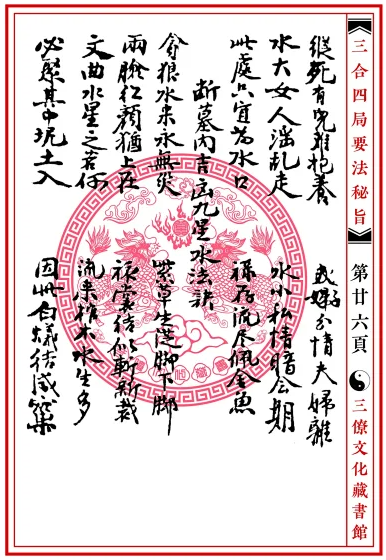 三合四局要法秘旨 第廿六頁 三僚文化藏書館
縱死有兒難抱養 分情夫婦離
水大女人淫乱走 水小私情暗合期
此處只宜為水口 祿存流尽佩金魚
断墓内吉凶九星水法訣
貪狼水来永無災 紫草生 脚下脚
兩臉红顏猶上在 裳結似斬新裁
文曲水星之若何 流来棺木水生多
必聚其中坭土入 因此白蟻結成窠